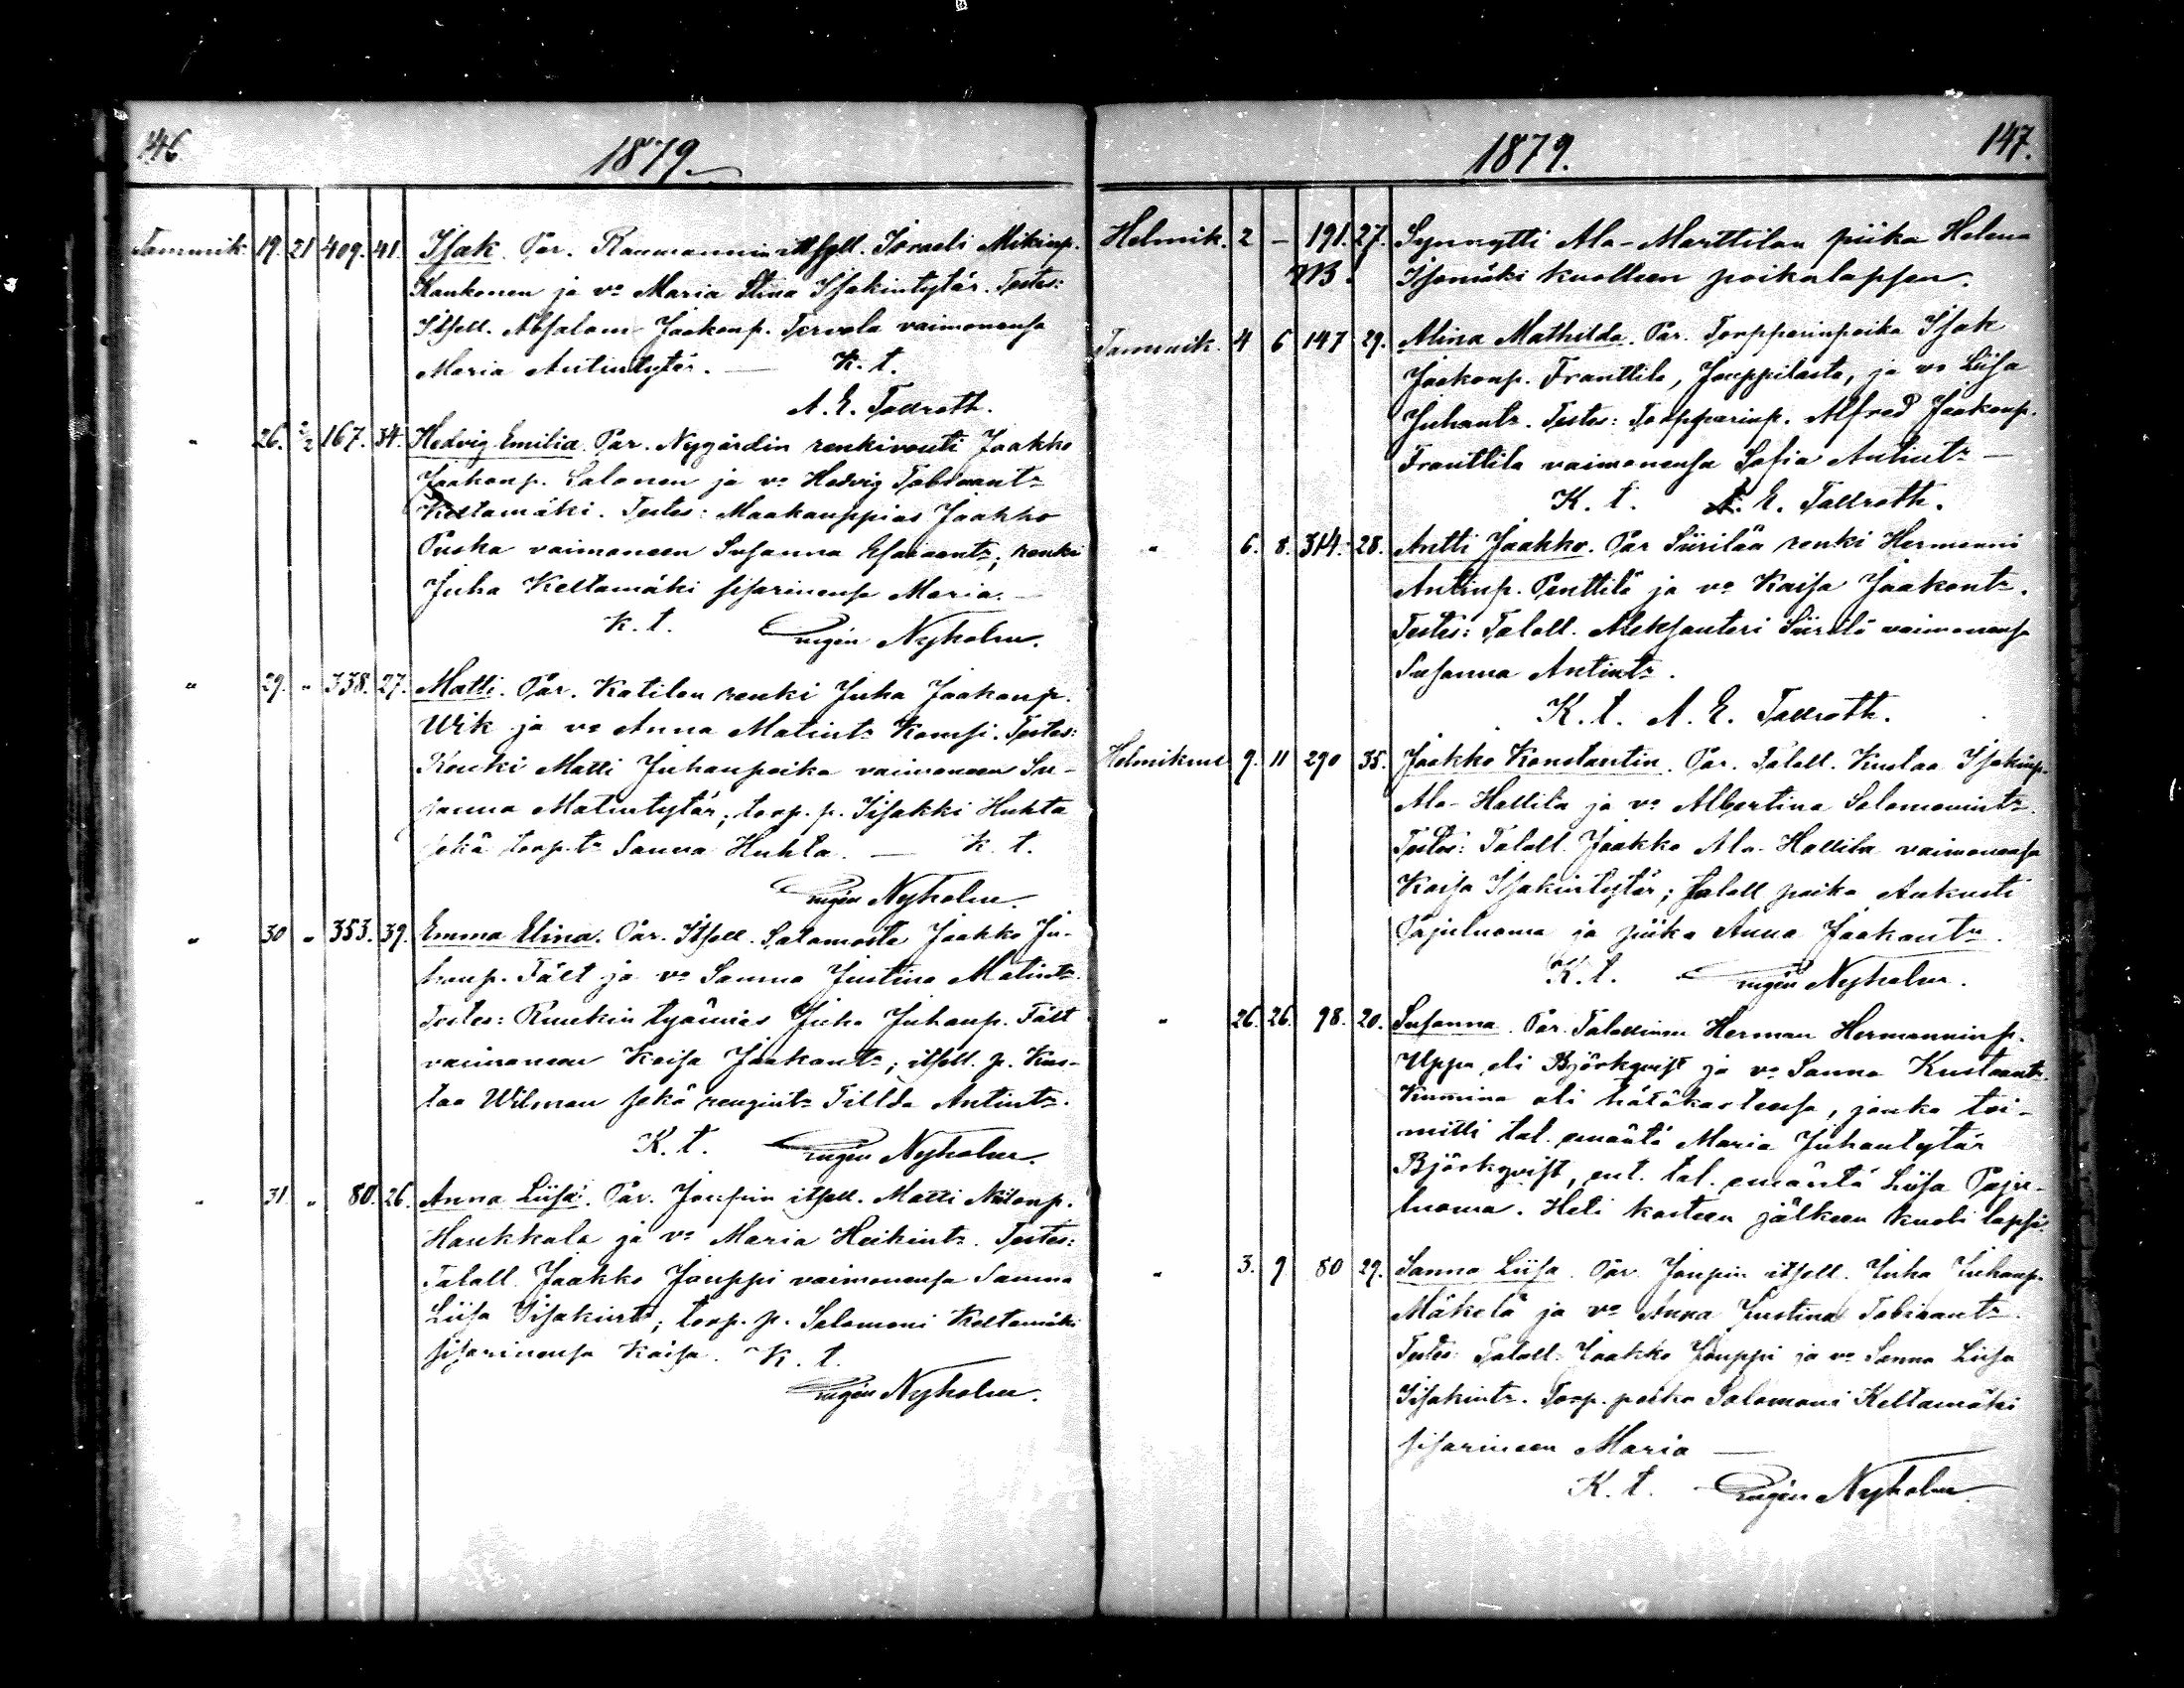 146
1879.
Tammik. 19. 21 409. 41. Isak. Par. Raumannin itsell. Israeli Mikinp.
Kankonen ja vo Maria Stina Isakintytär. Testes:
Itsell. Absalom Jaakonp. Tervola vaimonensa
Maria Antintytär. — K. t.
A. E. Tallroth.
" 26. 2/2 167. 34. Hedvig Emilia. Par. Nygårdin renkivouti Jaakko
Jaakonp. Salonen ja vo Hedvig Tobiaantr
Keltamäki. Testes: Maakauppias Jaakko
Puska vaimoneen Susanna Esaiaantr; renki
Juha Keltamäki sisarinensa Maria. —
K. t. Eugén Nyholm.
" 29. " 338. 27. Matti. Par. Katilan renki Juha Jaakonp.
Wik ja vo Anna Matintr Kamsi. Testes:
Renki Matti Juhanpoika vaimoneen Su-
sanna Matintytär; torp. p. Iisakki Huhta
sekä torp. tr Sanna Huhta. — K. t.
Eugén Nyholm.
" 30 " 353. 39. Emma Elina. Par. Itsell. Salomosta Jaakko Ju-
hanp. Fält ja vo Sanna Justina Matintr.
Testes: Ruukin työmies Juha Juhanp. Fält
vaimoneen Kaisa Jaakontr; itsell. p. Kus-
taa Wilman sekä rengintr Tillda Antintr.
K. t. Eugén Nyholm.
" 31. " 80. 26. Anna Liisa. Par. Joupin itsell. Matti Niilonp.
Haukkala ja vo Maria Heikintr. Testes:
Taloll. Jaakko Jouppi vaimonensa Sanna
Liisa Iisakintr; torp. p. Salomoni Keltamäki
sisarinensa Kaisa. K. t.
Eugén Nyholm.
147.
1879.
Helmik. 2 — 191. 27. Synnytti Ala-Marttilan piika Helena
NB. Isomäki kuolleen poikalapsen.
Tammik. 4 6 147 29. Alina Mathilda. Par. Torpparinpoika Isak
Jaakonp. Franttila, Jouppilasta, ja vo Liisa
Juhantr. Testes: Torpparinp. Alfred Jaakonp.
Franttila vaimonensa Sofia Antintr —
K. t. A. E. Tallroth.
" 6. 8. 314. 28. Antti Jaakko. Par Siirilän renki Hermanni
Antinp. Penttilä ja vo Kaisa Jaakontr.
Testes: Taloll. Aleksanteri Siirilä vaimonensa
Susanna Antintr.
K. t. A. E. Tallroth.
Helmikuu 9. 11 290 35. Jaakko Konstantin. Par. Taloll. Kustaa Isakinp.
Ala-Hallila ja vo Albertina Salomonintr.
Testes: Taloll. Jaakko Ala-Hallila vaimonensa
Kaisa Isakintytär; taloll poika Aukusti
Pajuluoma ja piika Anna Jaakontr.
K. t. Eugén Nyholm.
" 26. 26. 98. 20. Susanna. Par. Talollinen Herman Hermanninp.
Uppa eli Björkqvist ja vo Sanna Kustaantr.
Kummina oli hätäkasteessa, jonka toi-
mitti tal. emäntä Maria Juhantytär
Björkqvist, ent. tal. emäntä Liisa Paju-
luoma. Heti kasteen jälkeen kuoli lapsi.
" 3. 9 80 29. Sanna Liisa. Par. Joupin itsell. Juha Juhanp.
Mäkelä ja vo Anna Justina Tobiaantr.
Testes: Taloll. Jaakko Jouppi ja vo Sanna Liisa
Iisakintr. Torp. poika Salomoni Keltamäki
sisarineen Maria —
K. t. Eugén Nyholm.